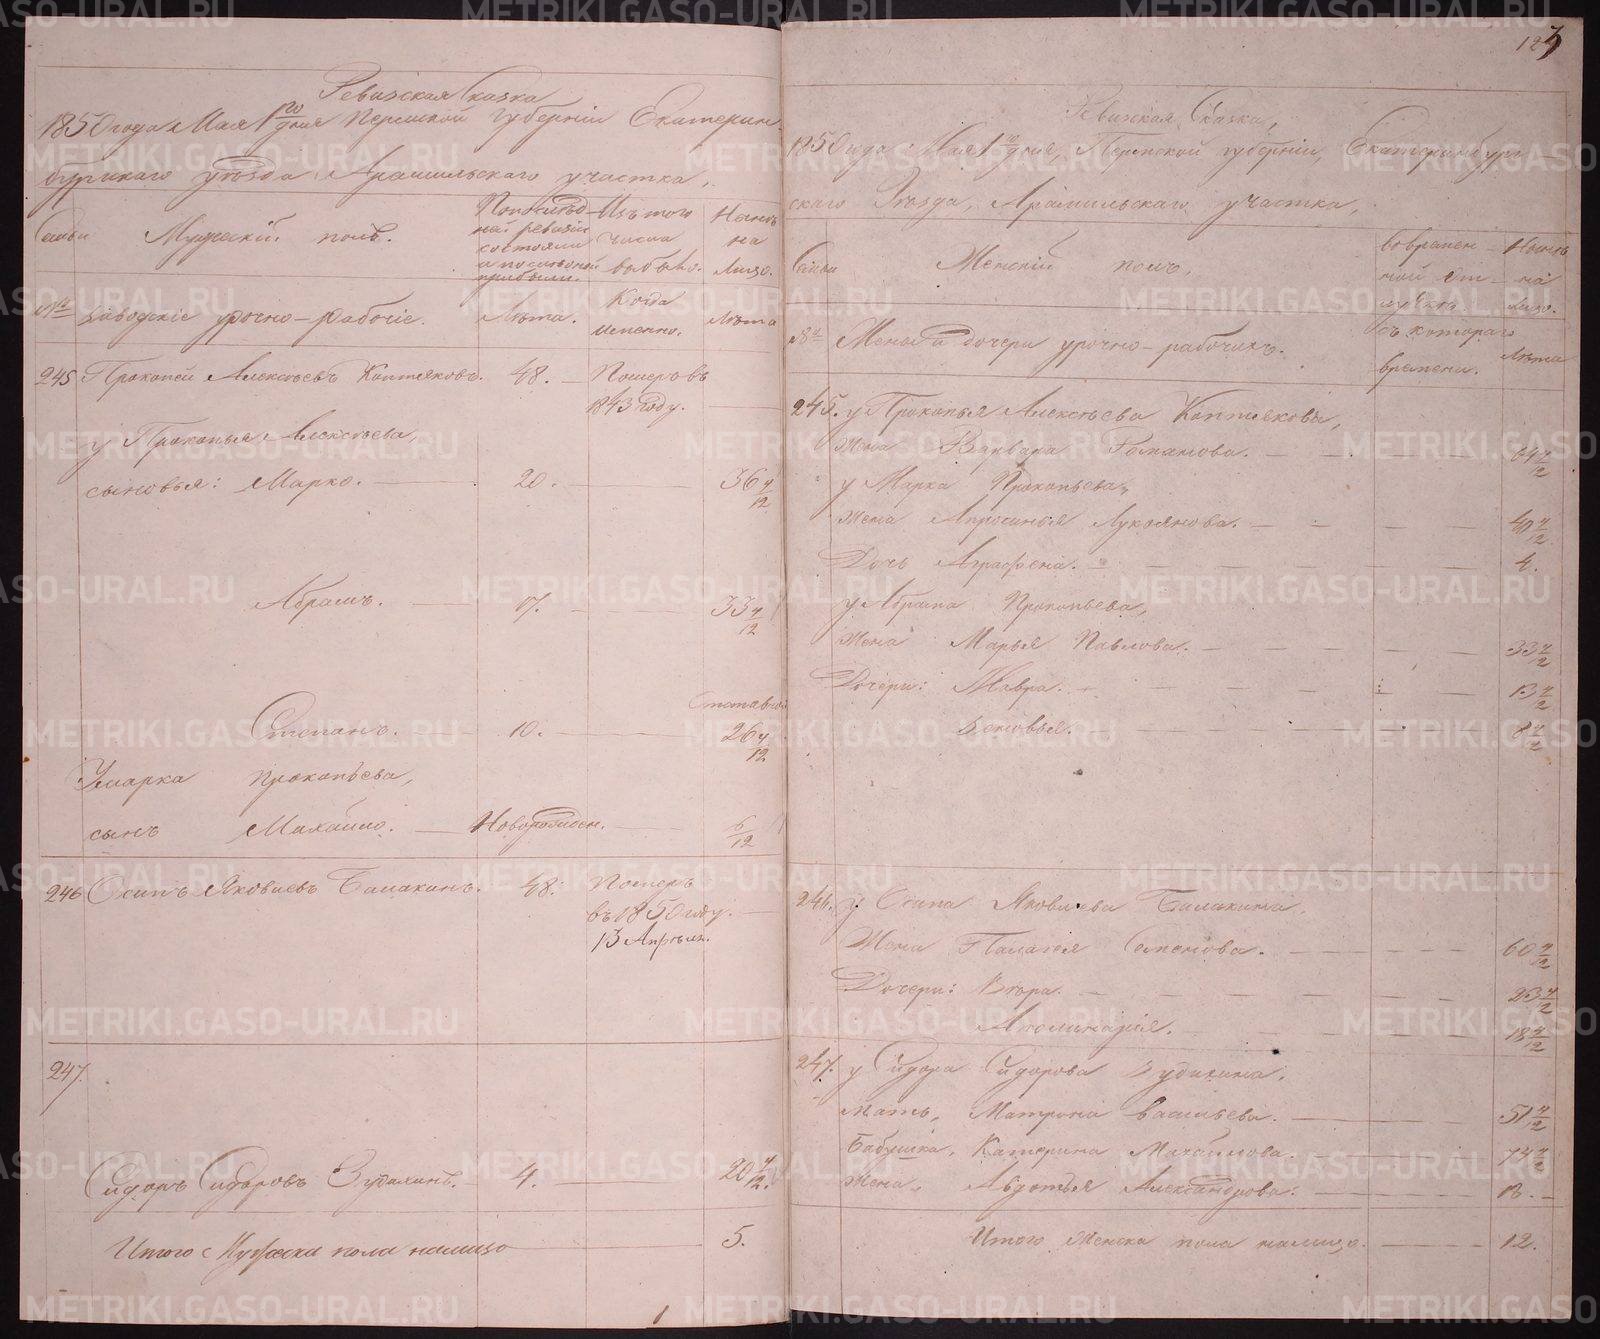 Ревизская Сказка
1850 года Мая 1го дня Пермской Губернии Екатерин
бургскаго уѣзда Арамильскаго участка,
Семьи
Мужескій полъ.
По последней ревизіи состояло и после оной прибыло.
Изъ того числа выбыло.
Нынѣ на лицо.
№
Заводскіе урочно-рабочіе.
Лѣта.
Когда именно.
Лѣта
245 Прокопей Алексѣевъ Коптяковъ. 48. Померъ въ
1843 году.
у Прокопья Алексѣева,
сыновья: Марко. 20. 36 4/12
Абрамъ. 17. 33 4/12
Степанъ. 10. 26 4/12
У марка прокопьева,
сынъ Михайло. Новорожден. 6/12
246 Осипъ Яковлевъ Балакинъ. 48. Померъ
въ 1850 году.
13 Апрѣля.
247.
Сидоръ Сидоровъ Зубакинъ. 4. 20 4/12.
Итого Мужеска пола налицо 5.
Ревизская Сказка,
1850 года Мая 1го дня, Пермской губерніи, Екатеринбург-
скаго Уезда, Арамильскаго участка,
Семьи
Женскій полъ,
во временной отлучкѣ
Нынѣ на лицо.
№
Жены и дочери урочно-рабочихъ.
съ котораго времени.
Лѣта
245. у Прокопья Алексѣева Коптякова,
Жена Варвара Романова. 64 4/12
у Марка Прокопьева,
Жена Апросинья Лукоянова. 40 4/12
Дочь Аграфена. 4.
у Абрама Прокопьева,
Жена Марья Павлова. 33 4/12
Дочери: Мавра. 13 4/12
Зеновья. 8 4/12
246. у Осипа Яковлева Балакина,
Жена Палагея Семенова. 60 4/12
Дочери: 23 4/12
Аполинарія. 18 4/12
247. у Сидора Сидорова Зубакина,
Мать, Матрона Васильева. 51 4/12
Бабушка, Катерина Михайлова. 74 4/12
Жена, Авдотья Александрова. 18.
Итого Женска пола налицо. 12.
METRIKI.GASO-URAL.RU